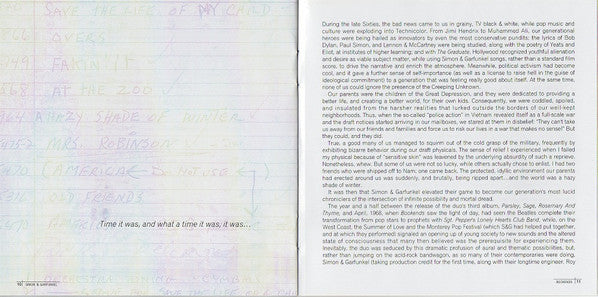 SAVE THE LIFE OF MY CHILD
OVERS
FAKIN' IT
AT THE ZOO
A HAZY SHADE OF WINTER
MRS. ROBINSON
AMERICA
FRIENDS
Time it was, and what a time it was, it was...
SIMON & GARFUNKEL
During the late Sixties, the bad news came to us in grainy, TV black & white, while pop music and
culture were exploding into Technicolor. From Jimi Hendrix to Muhammad Ali, our generational
heroes were being hailed as innovators by even the most conservative pundits; the lyrics of Bob
Dylan, Paul Simon, and Lennon & McCartney were being studied, along with the poetry of Yeats and
Eliot, at institutes of higher learning; and with The Graduate, Hollywood recognized youthful alienation
and desire as viable subject matter, while using Simon & Garfunkel songs, rather than a standard film
score, to drive the narrative and enrich the atmosphere. Meanwhile, political activism had become
cool, and it gave a further sense of self-importance (as well as a license to raise hell in the guise of
ideological commitment) to a generation that was feeling really good about itself. At the same time,
none of us could ignore the presence of the Creeping Unknown.
Our parents were the children of the Great Depression, and they were dedicated to providing a
better life, and creating a better world, for their own kids. Consequently, we were coddled, spoiled,
and insulated from the harsher realities that lurked outside the borders of our well-kept
neighborhoods. Thus, when the so-called "police action" in Vietnam revealed itself as a full-scale war
and the draft notices started arriving in our mailboxes, we stared at them in disbelief: "They can't take
us away from our friends and families and force us to risk our lives in a war that makes no sense!" But
they could, and they did.
True, a good many of us managed to squirm out of the cold grasp of the military, frequently by
exhibiting bizarre behavior during our draft physicals. The sense of relief I experienced when I failed
my physical because of "sensitive skin" was leavened by the underlying absurdity of such a reprieve.
Nonetheless, whew. But some of us were not so lucky, while others actually chose to enlist. I had two
friends who were shipped off to Nam; one came back. The protected, idyllic environment our parents
had erected around us was suddenly, and brutally, being ripped apart...and the world was a hazy
shade of winter.
It was then that Simon & Garfunkel elevated their game to become our generation's most lucid
chroniclers of the intersection of infinite possibility and mortal dread.
The year and a half between the release of the duo's third album, Parsley, Sage, Rosemary And
Thyme, and April, 1968, when Bookends saw the light of day, had seen the Beatles complete their
transformation from pop stars to prophets with Sgt. Pepper's Lonely Hearts Club Band, while, on the
West Coast, the Summer of Love and the Monterey Pop Festival (which S&G had helped put together,
and at which they performed) signaled an opening up of young society to new sounds and the altered
state of consciousness that many then believed was the prerequisite for experiencing them.
Inevitably, the duo was seduced by this dramatic profusion of aural and thematic possibilities, but,
rather than jumping on the acid-rock bandwagon, as so many of their contemporaries were doing,
Simon & Garfunkel (taking production credit for the first time, along with their longtime engineer, Roy
BOOKENDS